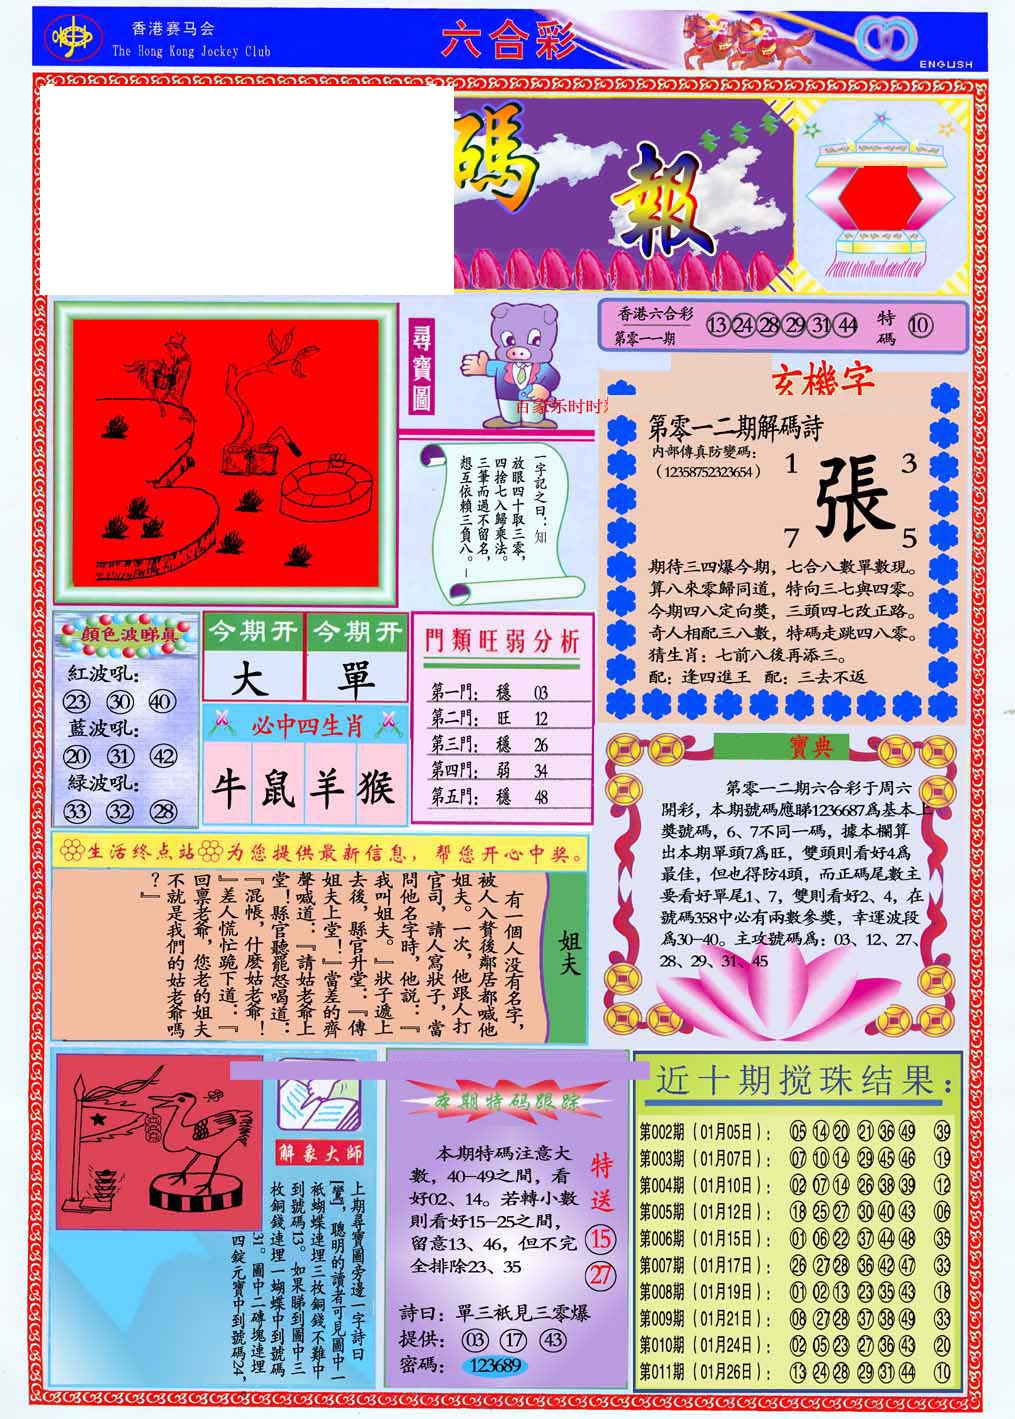 香港赛马会
The Hong Kong Jockey Club
六合彩
ENGLISH
碼報
香港六合彩
第零一一期
13 24 28 29 31 44
特碼
10
尋寶圖
一字記之曰：知
放眼四十取三零，
四捨七入歸乘法。
三筆而過不留名，
想互依賴三負八。
玄機字
第零一二期解碼詩
內部傳真防變碼：
（12358752323654）
1 3
張
7 5
期待三四爆今期，七合八數單數現。
算八來零歸同道，特向三七與四零。
今期四八定向獎，三頭四七改正路。
奇人相配三八數，特碼走跳四八零。
猜生肖：七前八後再添三。
配：逢四進王 配：三去不返
顏色波睇真
紅波吼：
23 30 40
藍波吼：
20 31 42
緑波吼：
33 32 28
今期开 今期开
大 單
必中四生肖
牛 鼠 羊 猴
門類旺弱分析
第一門： 穩 03
第二門： 旺 12
第三門： 穩 26
第四門： 弱 34
第五門： 穩 48
寶典
第零一二期六合彩于周六
開彩，本期號碼應睇1236687爲基本上
獎號碼，6、7不同一碼，據本欄算
出本期單頭7爲旺，雙頭則看好4爲
最佳，但也得防4頭，而正碼尾數主
要看好單尾1、7，雙則看好2、4，在
號碼358中必有兩數參獎，幸運波段
爲30-40。主攻號碼爲：03、12、27、
28、29、31、45
生活终点站 为您提供最新信息，帮您开心中奖。
姐夫
有一個人没有名字，
被人入贅後鄰居都喊他
姐夫。一次，他跟人打
官司，請人寫狀子，當
問他名字時，他説：『
我叫姐夫。』狀子遞上
去後，縣官升堂：『傳
姐夫上堂！』當差的齊
聲喊道：『請姑老爺上
堂！縣官聽罷怒喝道：
『混帳，什麽姑老爺！
』差人慌忙跪下道：『
回禀老爺，您老的姐夫
不就是我們的姑老爺嗎
？』
解象大師
上期尋寶圖旁邊一字詩曰
[鸞]，聰明的讀者可見圖中一
衹蝴蝶連埋三枚銅錢不難中
到號碼13。如果睇到圖中三
枚銅錢連埋一蝴蝶中到號碼
31。圖中二磚塊連埋
四錠元寶中到號碼24，
本期特码跟踪
本期特碼注意大
數，40-49之間，看
好02、14。若轉小數
則看好15-25之間，
留意13、46，但不完
全排除23、35
特送
15
27
詩曰：單三衹見三零爆
提供： 03 17 43
密碼： 123689
近十期搅珠结果：
第002期（01月05日）： 05 14 20 21 36 49 39
第003期（01月07日）： 07 10 14 29 45 46 19
第004期（01月10日）： 02 07 14 26 38 39 12
第005期（01月12日）： 18 25 27 30 40 43 06
第006期（01月15日）： 01 06 22 37 44 48 35
第007期（01月17日）： 26 27 28 36 42 47 33
第008期（01月19日）： 01 02 13 23 35 43 18
第009期（01月21日）： 08 27 28 37 38 49 33
第010期（01月24日）： 02 05 23 27 36 43 20
第011期（01月26日）： 13 24 28 29 31 44 10